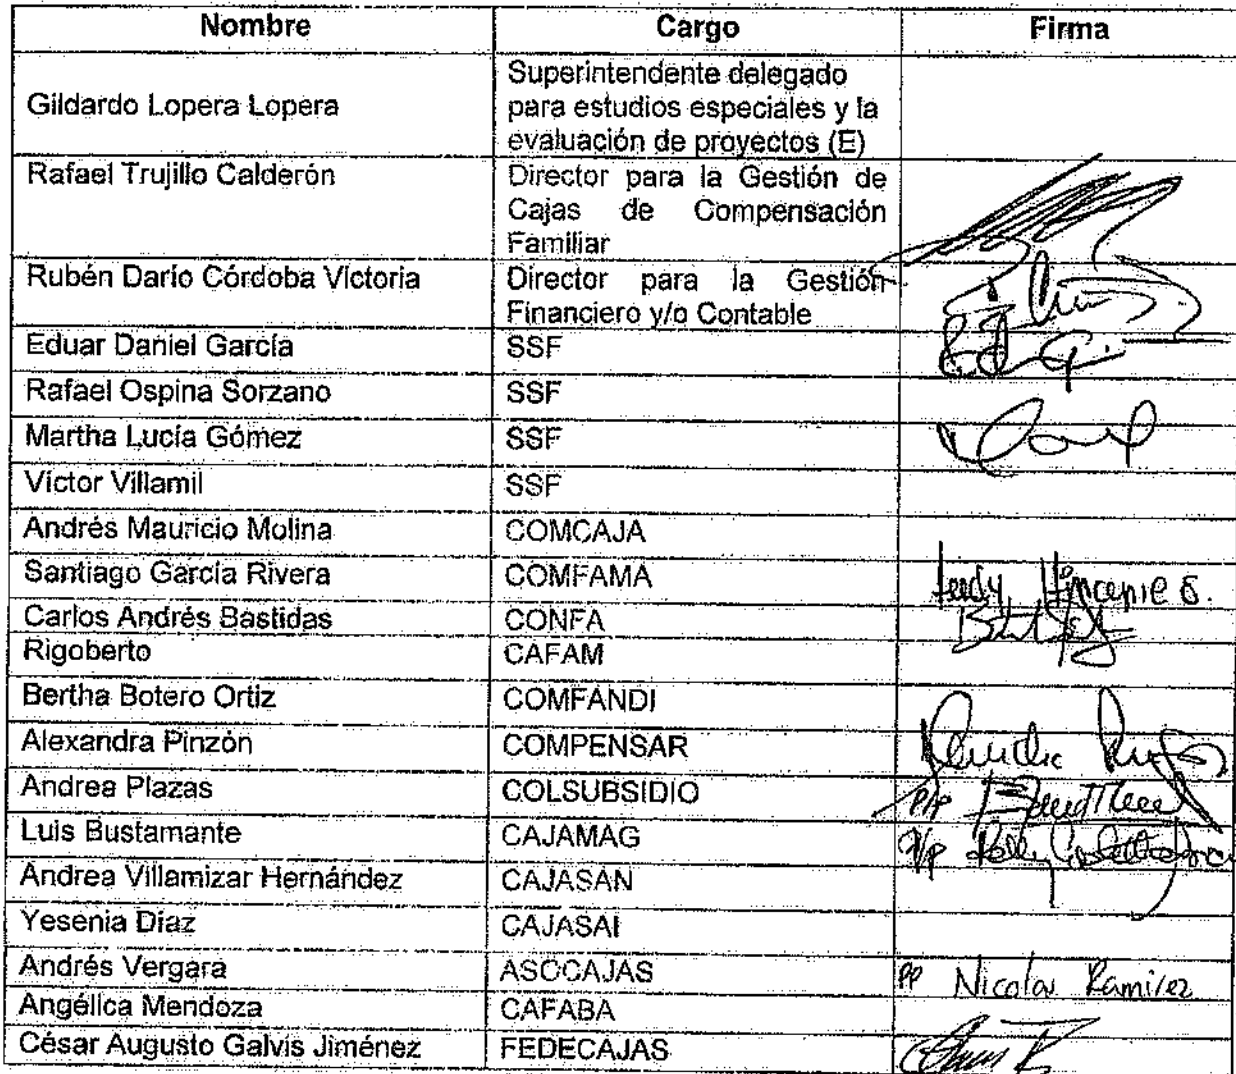 Nombre Cargo Firma
Superintendente delegado
Gildardo Lopera Lopera para estudios especiales y la
evaluación de proyectos (E)
Rafael Trujillo Calderón Director para la Gestión de
Cajas de Compensación
Familiar
Rubén Darío Córdoba Victoria Director para la Gestión
Financiero y/o Contable
Eduar Daniel García SSF
Rafael Ospina Sorzano SSF
Martha Lucía Gómez SSF
Víctor Villamil SSF
Andrés Mauricio Molina COMCAJA
Santiago García Rivera COMFAMA
Carlos Andrés Bastidas CONFA
Rigoberto CAFAM
Bertha Botero Ortiz COMFANDI
Alexandra Pinzón COMPENSAR
Andrea Plazas COLSUBSIDIO P/P
Luis Bustamante CAJAMAG P/P
Andrea Villamizar Hernández CAJASAN
Yesenia Díaz CAJASAI
Andrés Vergara ASOCAJAS PP Nicolas Ramirez
Angélica Mendoza CAFABA
César Augusto Galvis Jiménez FEDECAJAS